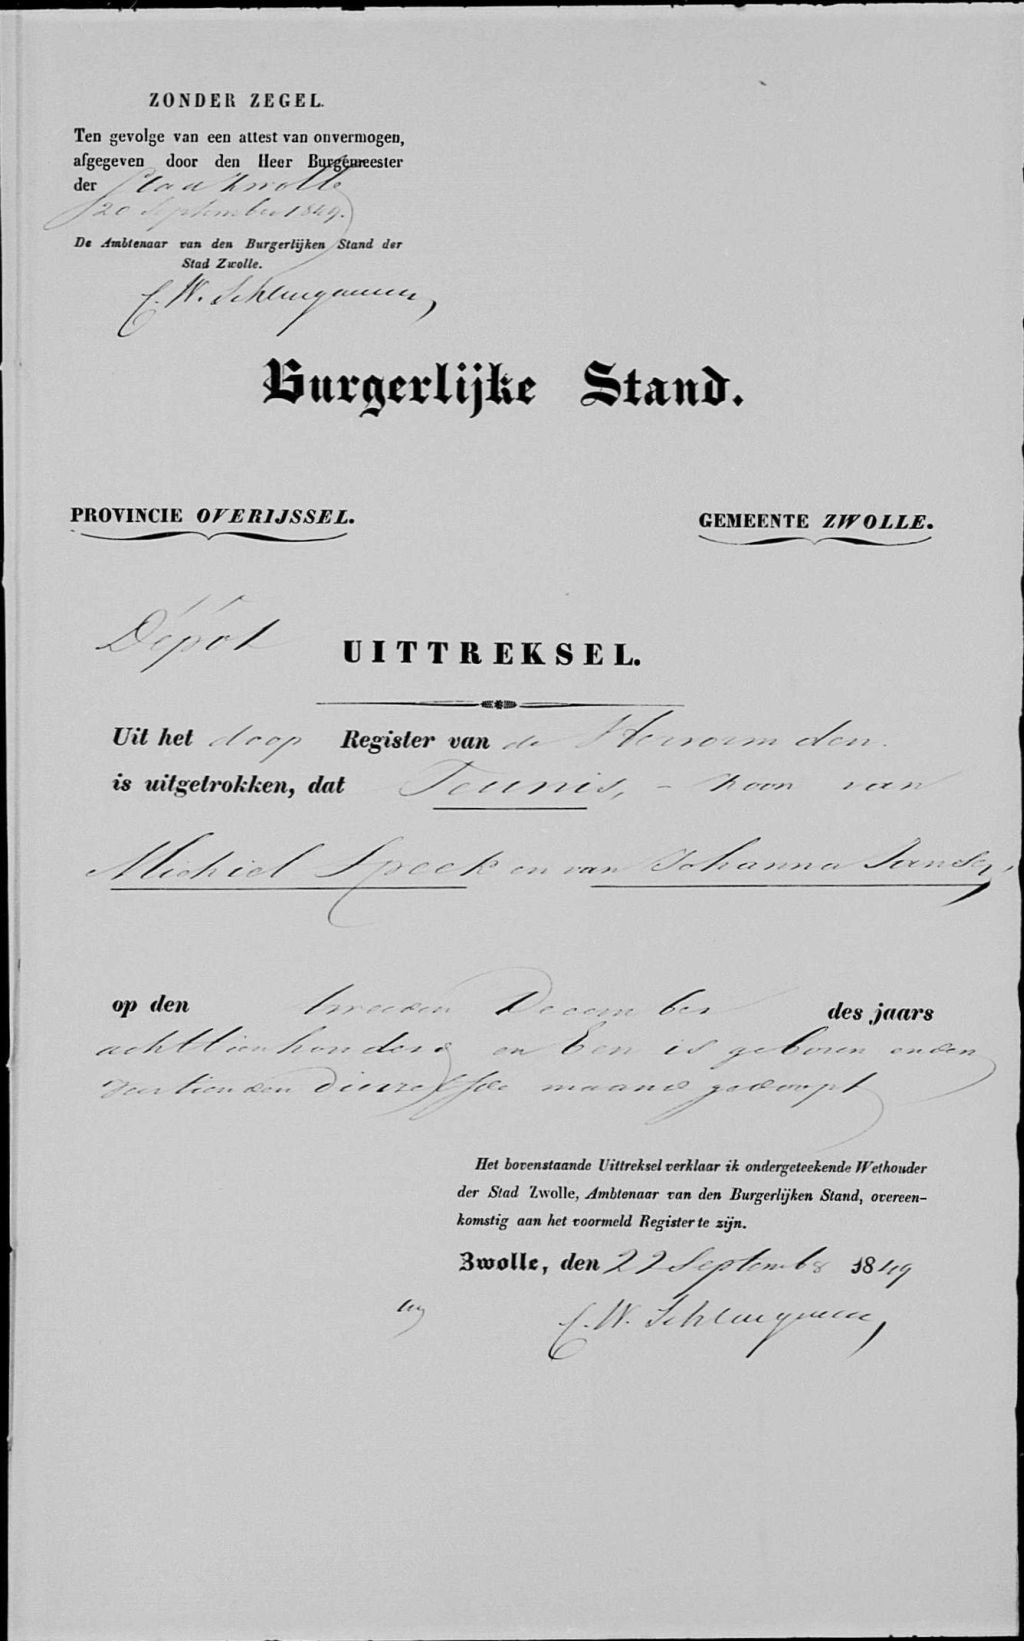 ZONDER ZEGEL.
Ten gevolge van een attest van onvermogen,
afgegeven door den Heer Burgemeester
der Stad Zwolle
20 September 1849.
De Ambtenaar van den Burgerlijken Stand der
Stad Zwolle.
C. W.
Burgerlijke Stand.
PROVINCIE OVERIJSSEL.
GEMEENTE ZWOLLE.
Dépôt
UITTREKSEL.
Uit het doop Register van de Hervormden
is uitgetrokken, dat Teunis, - zoon van
Michiel Speek en van Johanna Jansen,
op den tweeden December des jaars
achttienhonderd en Een is geboren en den
dierzelfde maand gedoopt
Het bovenstaande Uittreksel verklaar ik ondergeteekende Wethouder
der Stad Zwolle, Ambtenaar van den Burgerlijken Stand, overeen-
komstig aan het voormeld Register te zijn.
Zwolle, den 22 September 1849
C. W.